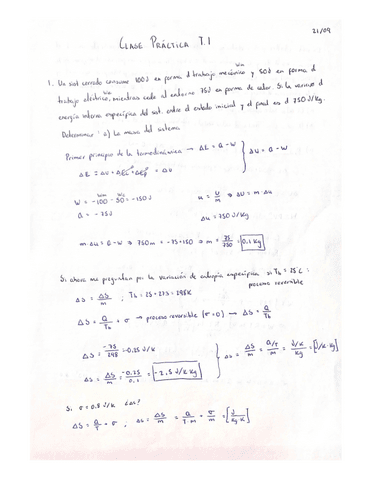 21/09
CLASE PRÁCTICA T.1
Wm
1. Un sist cerrado consume 100J en forma d trabajo mecánico y 50J en forma d
We
trabajo eléctrico, mientras cede al entorno 75J en forma de calor. Si la variac d
energía interna específica del sist. entre el estado inicial y el final es d 750 J/Kg.
Determinar: a) La masa del sistema
Primer principio de la termodinámica → ΔE = Q - W
ΔE = ΔU + ΔEc + ΔEp = ΔU
ΔU = Q - W
Wm We
W = -100 - 50 = -150J
Q = -75J
u = U/m ⇒ ΔU = m·Δu
Δu = 750 J/Kg
m·Δu = Q - W ⇒ 750m = -75+150 ⇒ m = 75/750 = 0,1 Kg
Si ahora me preguntan por la variación de entropía específica si Tb = 25 C :
proceso reversible
Δs = ΔS/m ; Tb = 25 + 273 = 298K
ΔS = Q/Tb + σ → proceso reversible (σ=0) → ΔS = Q/Tb
ΔS = -75/298 = -0.25 J/K
Δs = ΔS/m = -0.25/0,1 = -2,5 J/K Kg
Δs = ΔS/m = Q/T/m = J/K/Kg = [J/K·Kg]
Si σ = 0.8 J/K ¿Δs?
ΔS = Q/T + σ , Δs = ΔS/m = Q/T·m + σ/m = [J/Kg K]